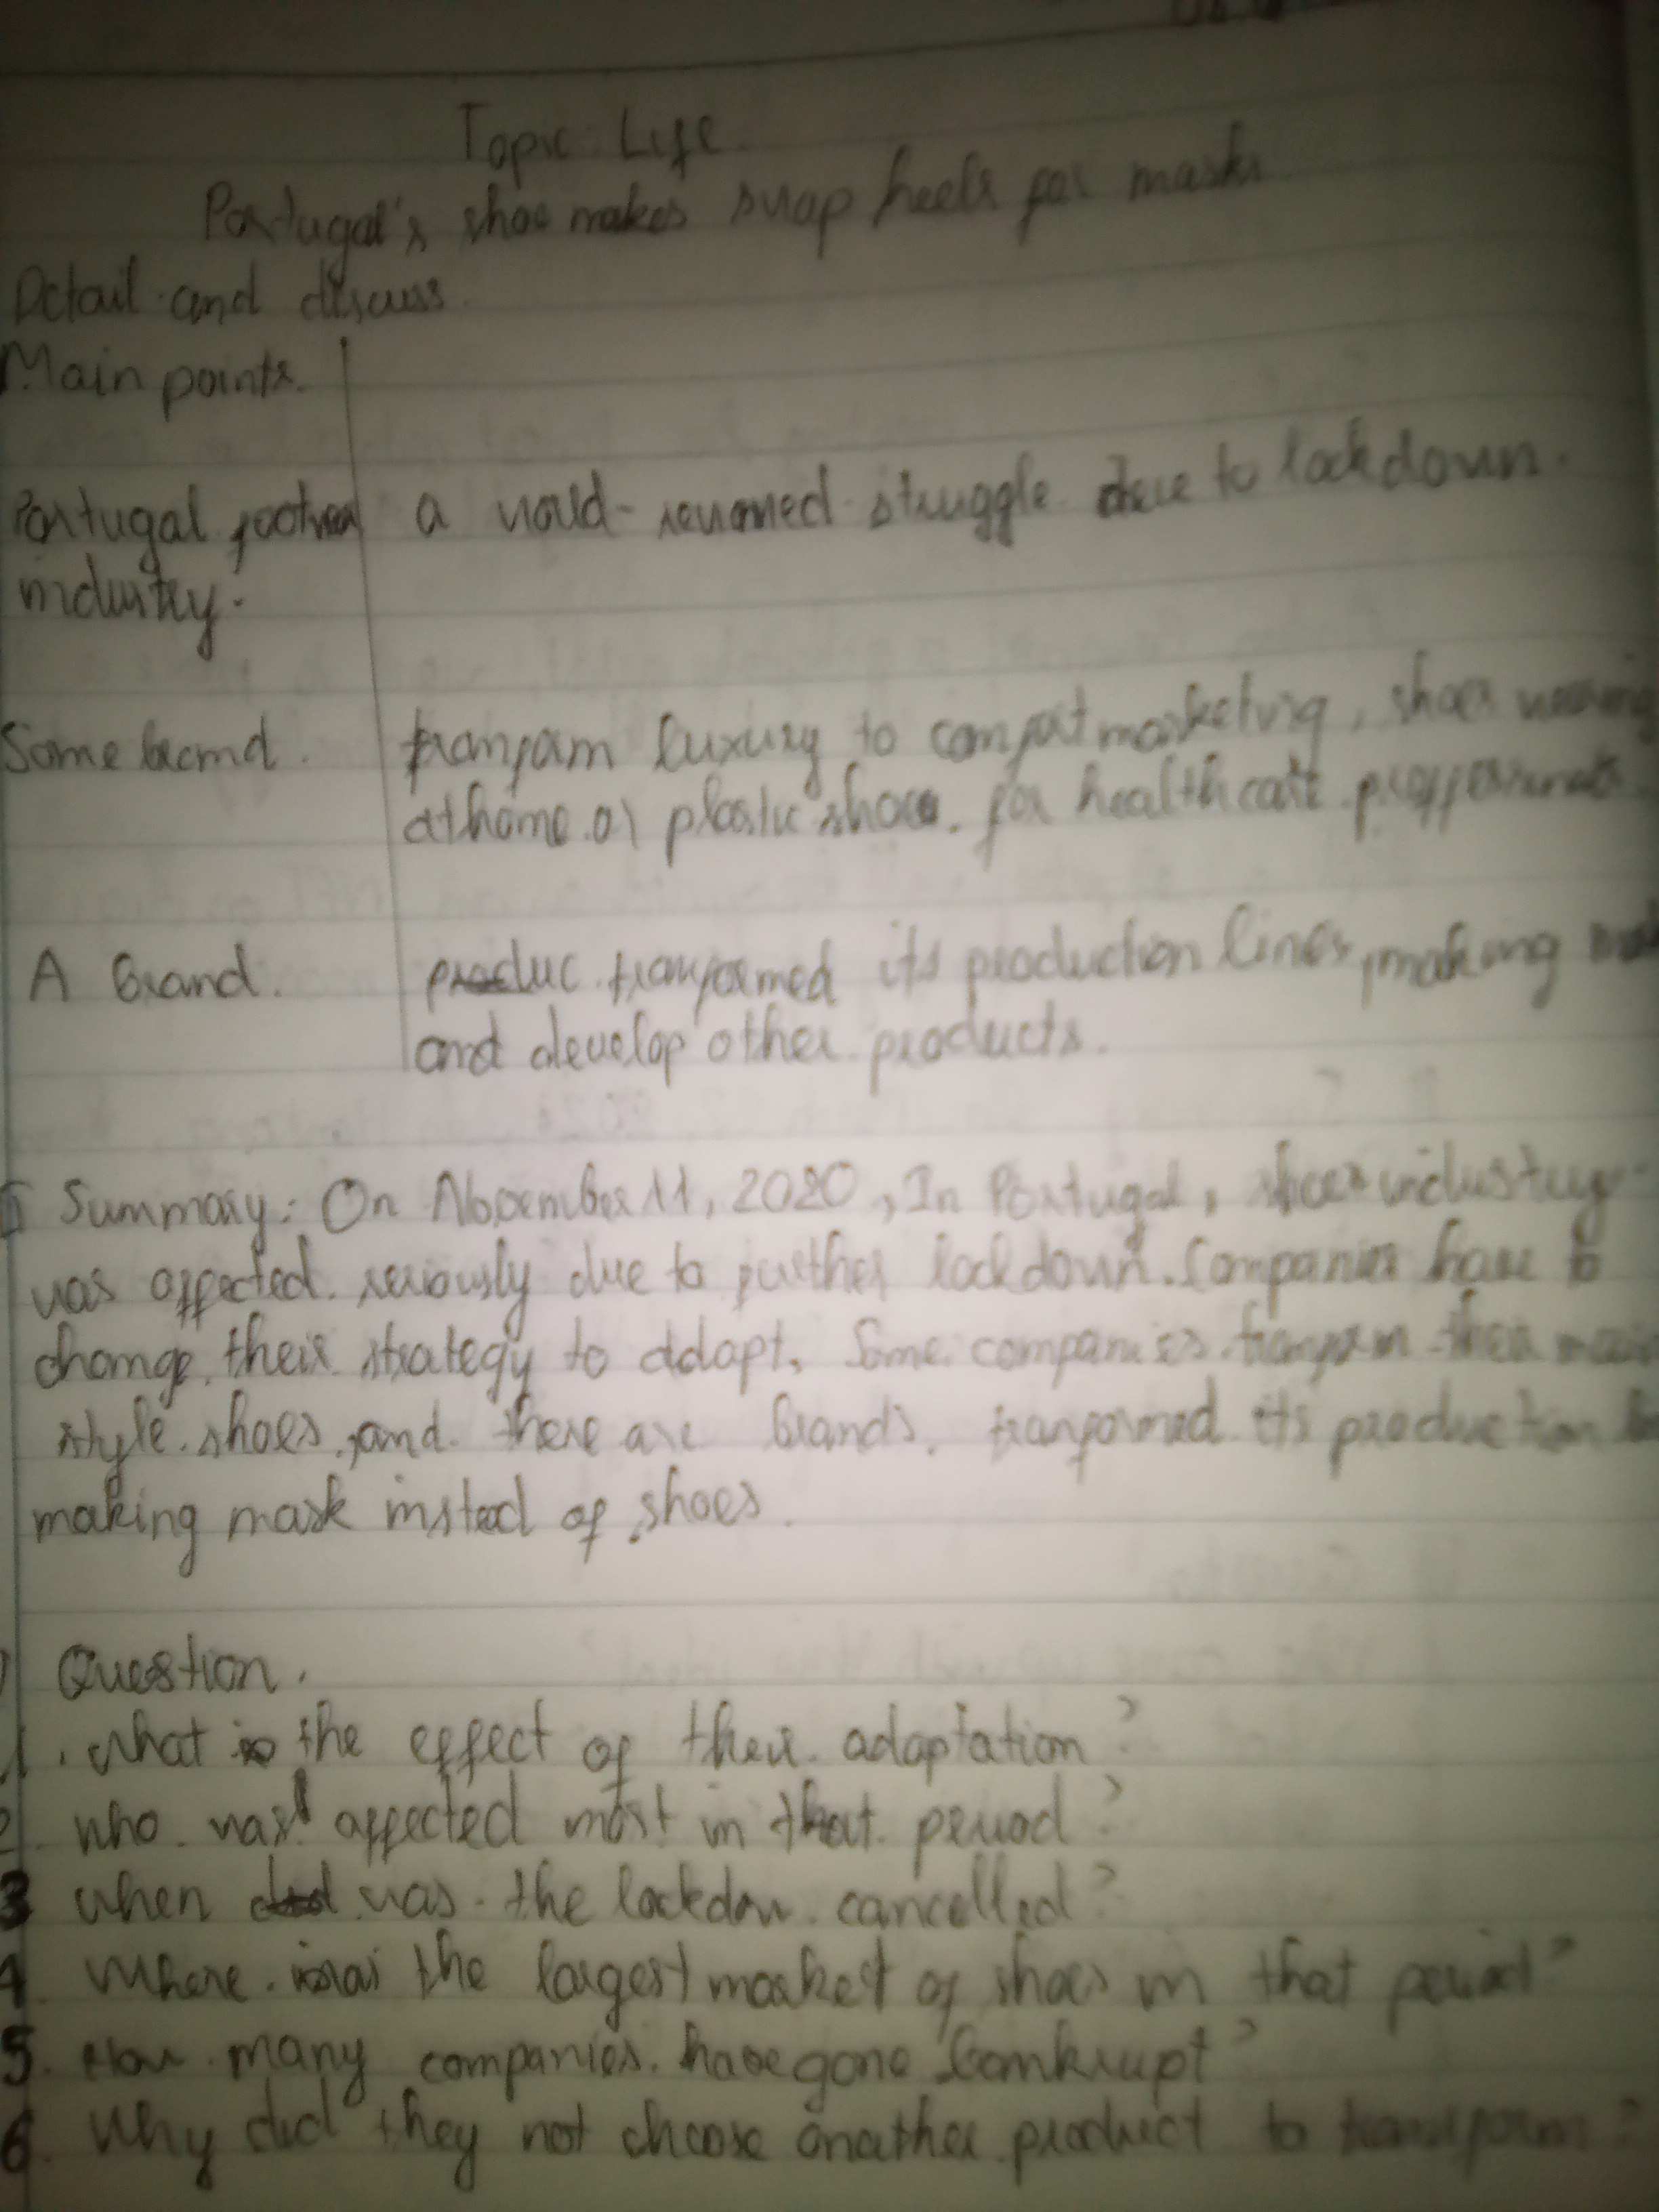 Topic Life
Portugal's shoe makes swap heels for masks
Detail and discuss.
Main points.
Portugal a would-renowned struggle due to lockdown.
industry.
Some brand. tranfom luxury to comfort marketing, shoes wearing
at home or plastic shoes. for healthcare proffessionals
A brand. transformed its production lines, making
and develop other products.
Summary: On November 11, 2020, In Portugal, shoes industry
was affected seriously due to further lockdown. Companies have to
change their strategy to adapt. Some companies tranform their main
style shoes, and there are brands. tranformed its production
making mask instead of shoes.
Question.
1. What is the effect of their adaptation?
2. who was affected most in that period?
3 when was the lockdow cancelled?
4. Where was the largest market of shoes in that period?
5. How many companies have gone bankrupt?
6. Why did they not choose another product to transform?